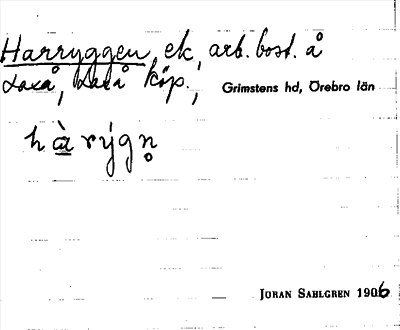 Harryggen, ek, arb.bost. å
Laxå, Laxå köp., Grimstens hd, Örebro län
hàrýgn̥
Jöran Sahlgren 1906